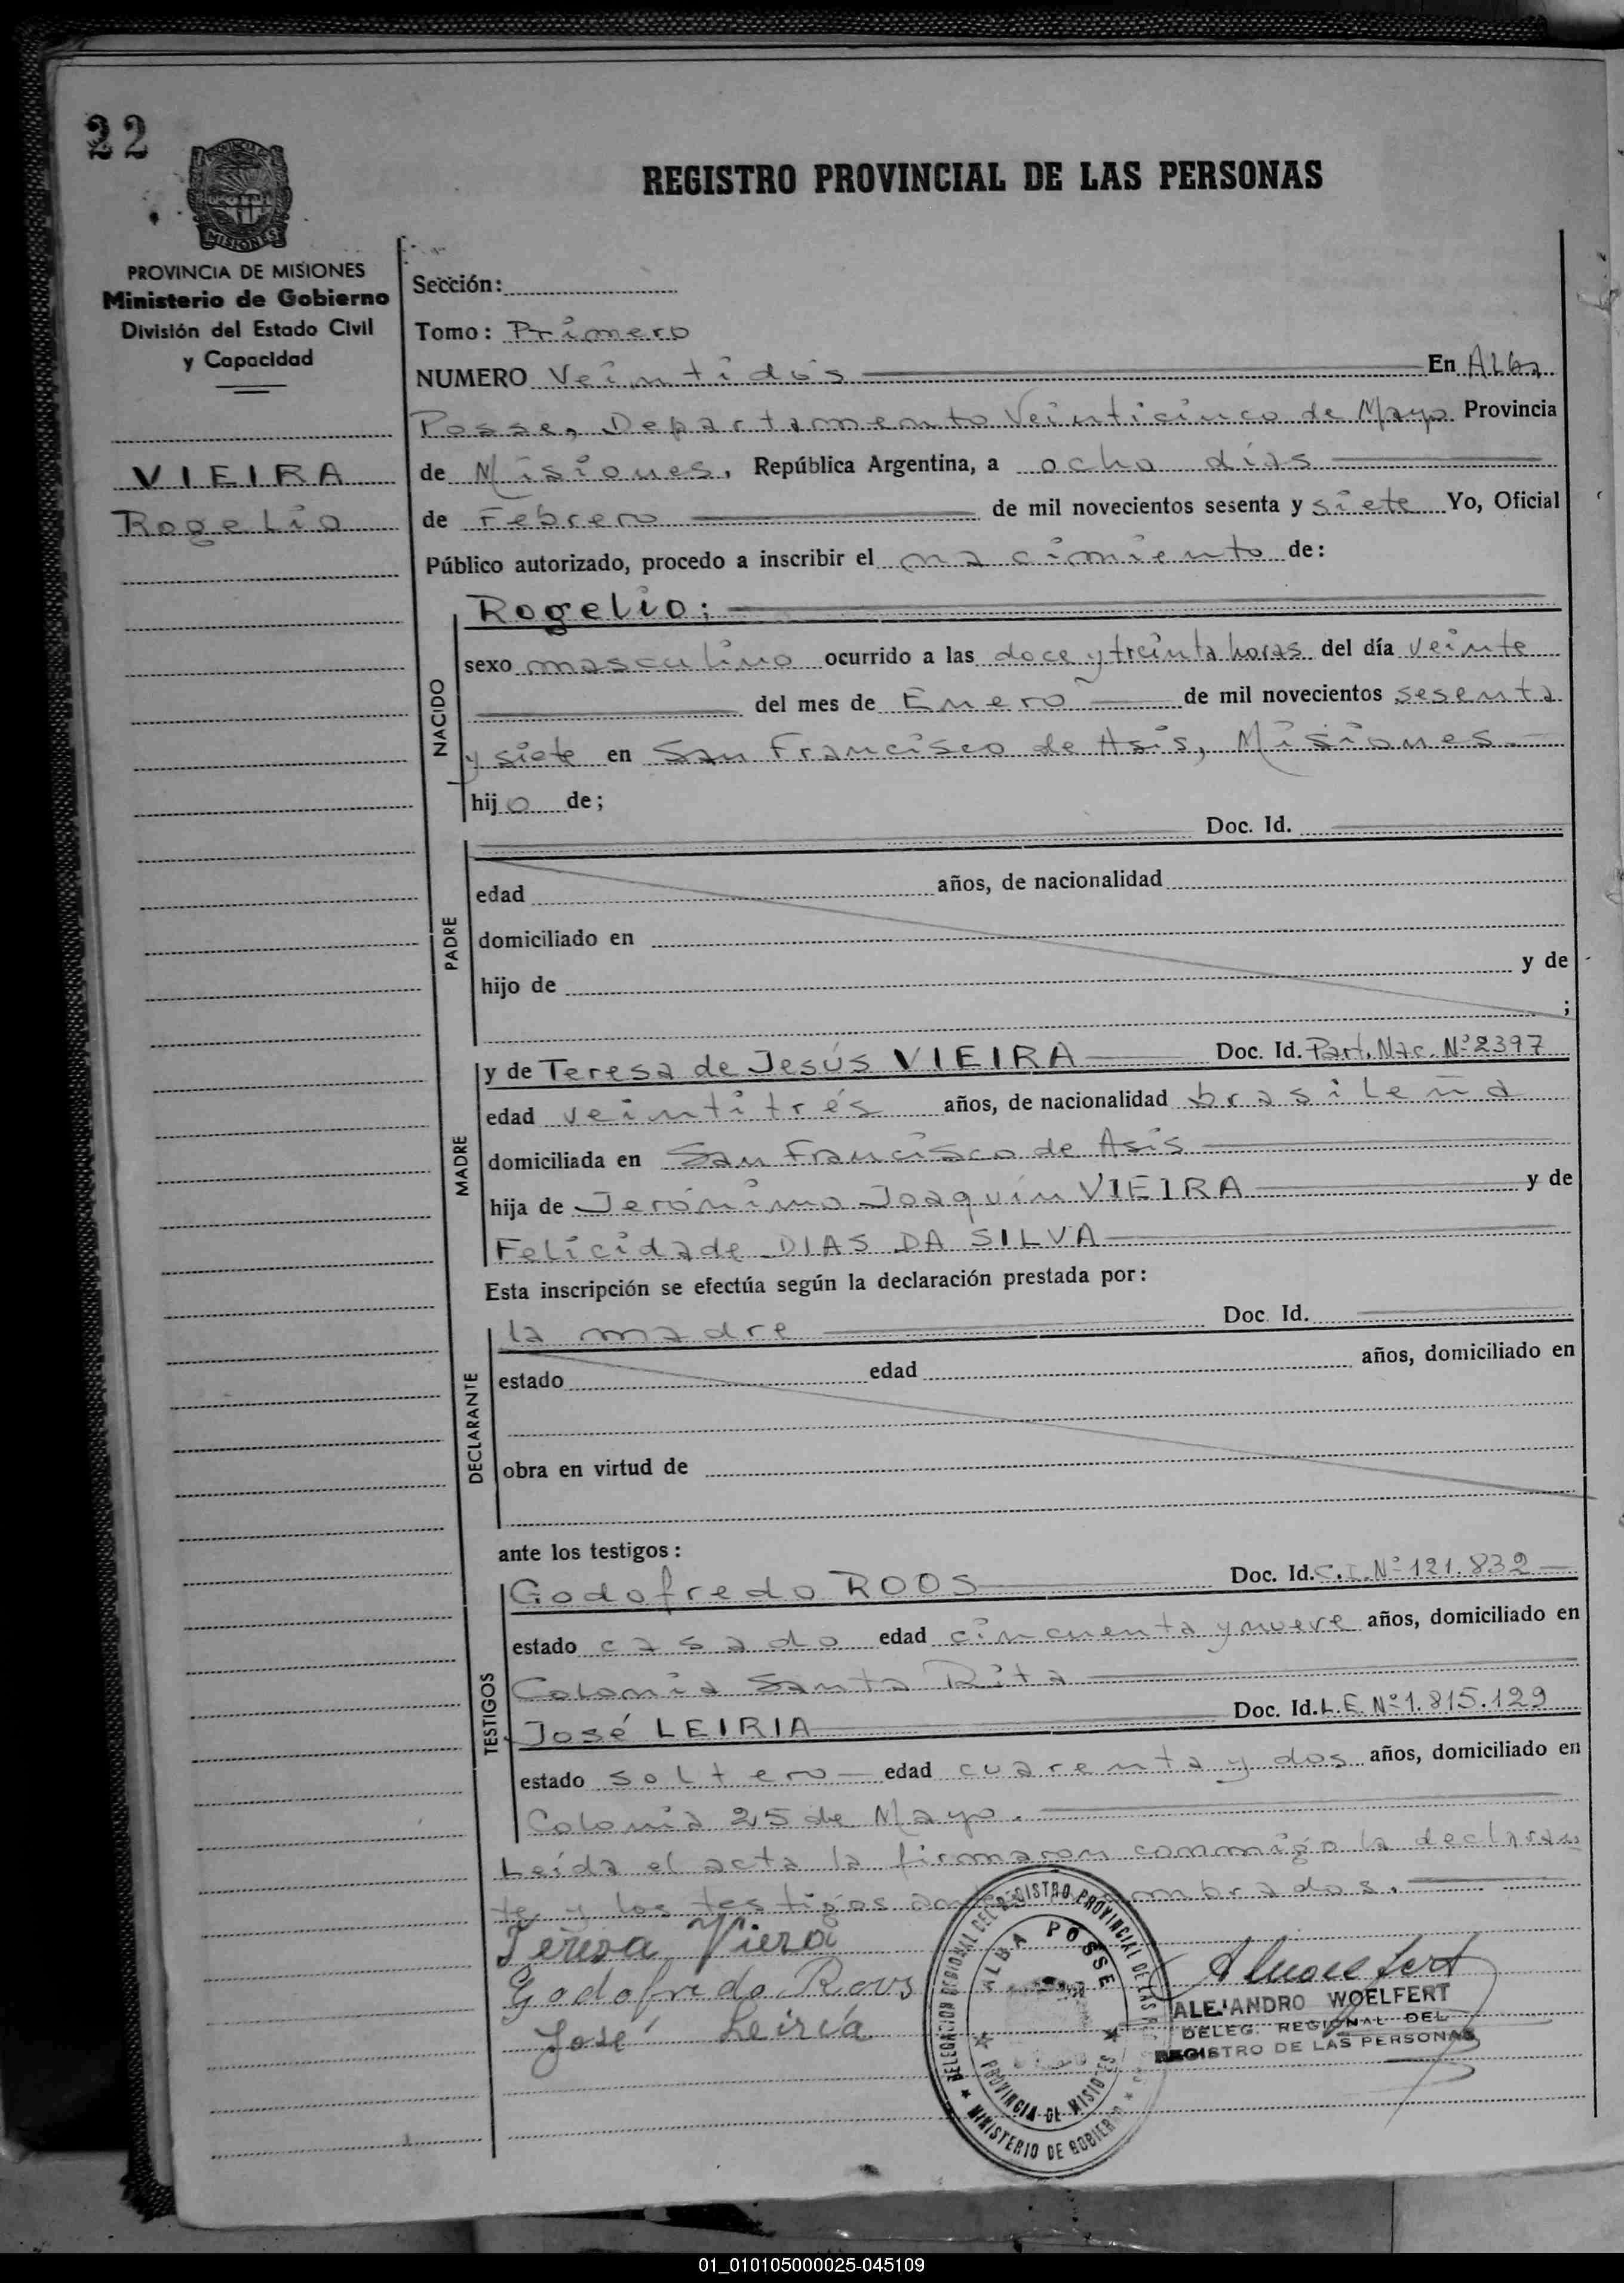 22
REGISTRO PROVINCIAL DE LAS PERSONAS
MISIONES
PROVINCIA DE MISIONES
Ministerio de Gobierno
División del Estado Civil
y Capacidad
VIEIRA
Rogelio
Sección:
Tomo: Primero
NUMERO Veintidós En Alba
Posse, Departamento Veinticinco de Mayo Provincia
de Misiones, República Argentina, a ocho días
de Febrero de mil novecientos sesenta y siete Yo, Oficial
Público autorizado, procedo a inscribir el nacimiento de:
NACIDO
Rogelio;
sexo masculino ocurrido a las doce y treinta horas del día veinte
del mes de Enero de mil novecientos sesenta
y siete en San Francisco de Asis, Misiones.
hijo de;
PADRE
Doc. Id.
edad años, de nacionalidad
domiciliado en
hijo de y de
;
MADRE
y de Teresa de Jesús VIEIRA Doc. Id. Part. Nac. Nº 2397
edad veintitrés años, de nacionalidad brasileña
domiciliada en San Francisco de Asis
hija de Jerónimo Joaquín VIEIRA y de
Felicidade DIAS DA SILVA
Esta inscripción se efectúa según la declaración prestada por:
DECLARANTE
la madre Doc. Id.
estado edad años, domiciliado en
obra en virtud de
ante los testigos:
TESTIGOS
Godofredo ROOS Doc. Id. C.I. Nº 121.832
estado casado edad cincuenta y nueve años, domiciliado en
Colonia Santa Rita
José LEIRIA Doc. Id. L.E. Nº 1.815.129
estado soltero edad cuarenta y dos años, domiciliado en
Colonia 25 de Mayo.
Leída el acta la firmaron conmigo la declaran
te y los testigos
Teresa Viera
Godofredo Roos
José Leiria
ALBA POSSE
PROVINCIA DE MISIONES
MINISTERIO DE GOBIERNO
ALEJANDRO WOELFERT
DELEG. REGIONAL DEL
REGISTRO DE LAS PERSONAS
01_010105000025-045109